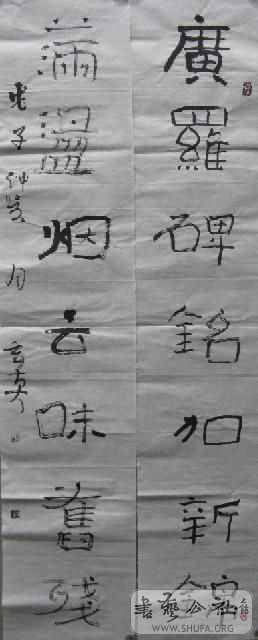 廣羅碑銘加新
滿溫烟云味舊殘
戊子仲月
書藝公社
WWW.SHUFA.ORG